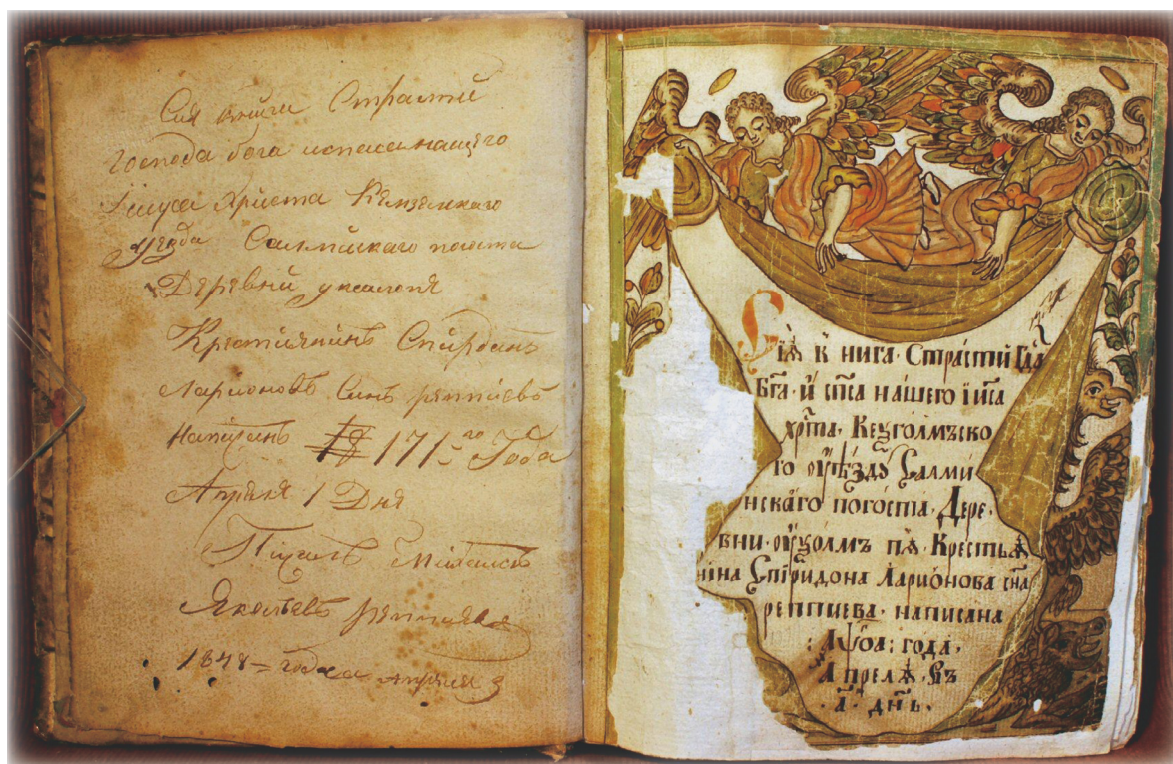 Сия книга Страстей
Господа бога испаса нашего
Іисуса Христа Кемземкаго
уезда Салмийскаго погоста
Деревни
Крестьянинъ Спирдонъ
Ларионовъ Синъ реппиевъ
Написанъ 171 го Года
Апреля 1 Дня
Писалъ
Яковлевъ
1848 – года апреля 3
Сіѧ книга Страстїй Гд҃а
Бг҃а и сп҃са нашего іи҃са
хр҃та Кеѯголмъско
го оуѣзду Салми
нскаго погоста Дере
вни Крестьѧ
нина Спиридона Ларионова сн҃а
реппиева написана
: ҂АѰОА : года
Апрелѧ въ
а҃ дн҃ь